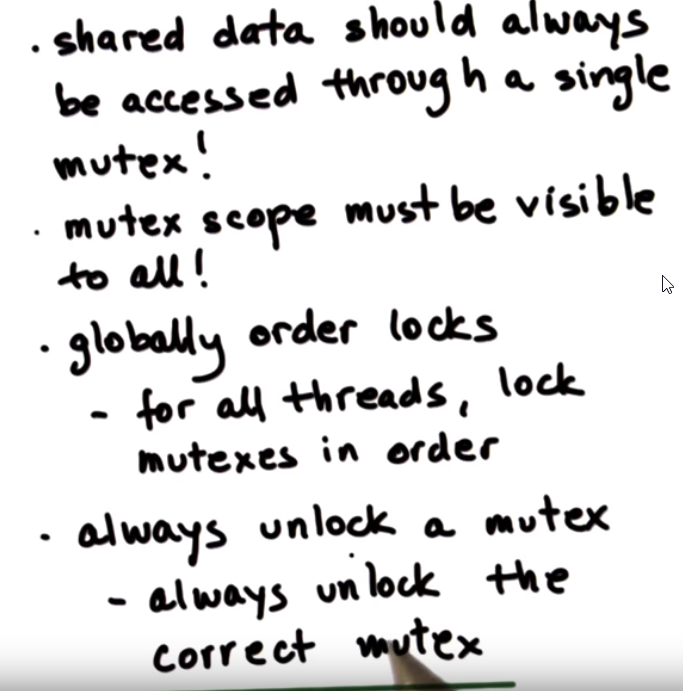 · shared data should always
be accessed through a single
mutex!
· mutex scope must be visible
to all!
· globally order locks
- for all threads, lock
mutexes in order
· always unlock a mutex
- always unlock the
correct mutex